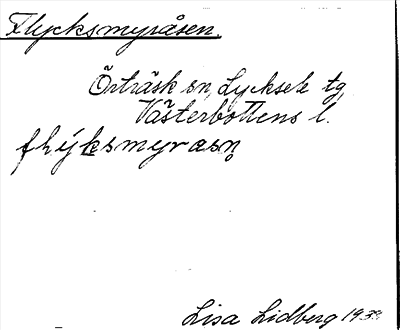 Flycksmyråsen.
Örträsk sn, Lycksele tg,
Västerbottens l.
flẏksmyrasn̥
Lisa Lidberg 1939